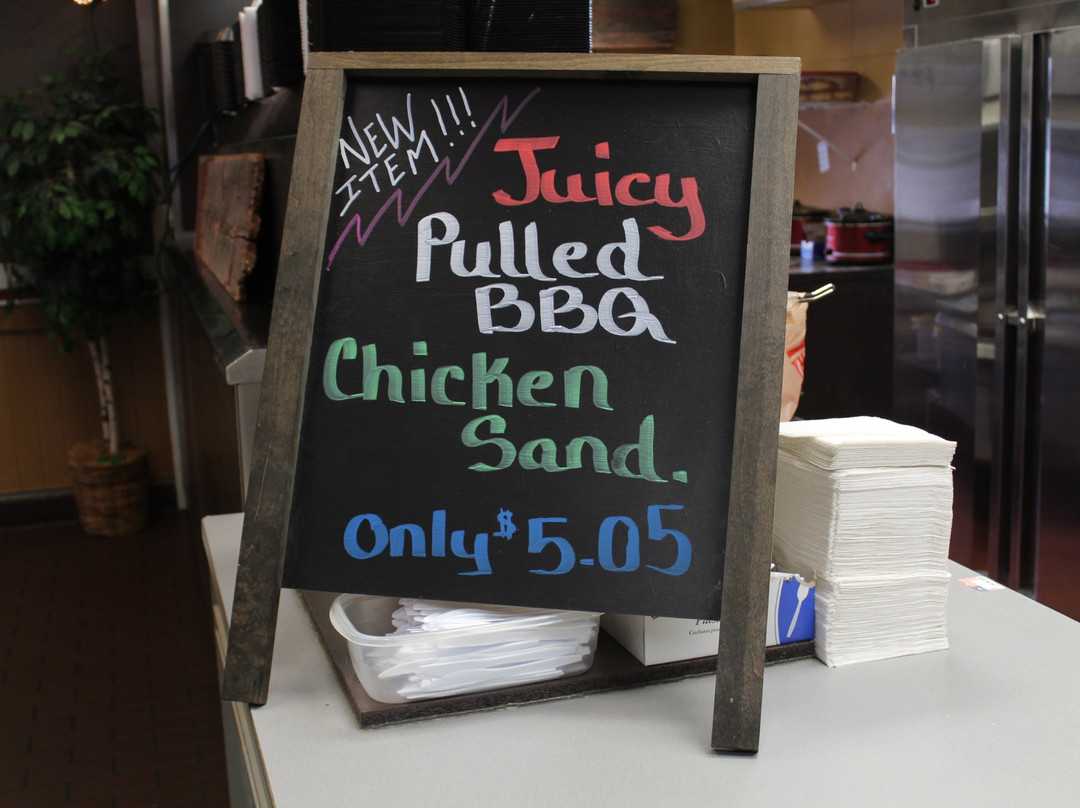 NEW
ITEM!!!
Juicy
Pulled
BBQ
Chicken
Sand.
Only $5.05